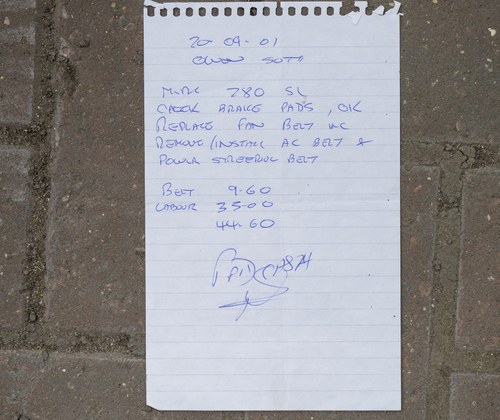 20-09-01
OWEN SOTO
MERC 280 SL
CHECK BRAKE PADS, OK
REPLACE FAN BELT INC
REMOVE/INSTALL AC BELT &
POWER STEERING BELT
BELT 9.60
LABOUR 35.00
44.60
PAID CASH